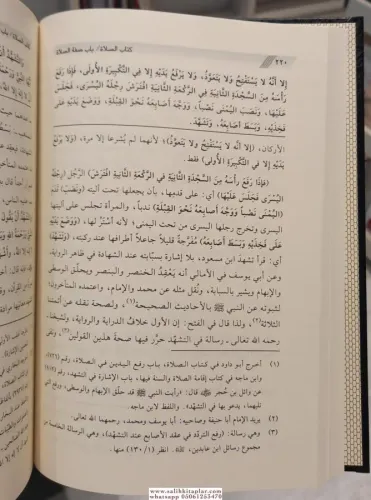 ٢٢٠
كتاب الصلاة/ باب صفة الصلاة
إلا أنه لا يستفتح ولا يتعوذ، ولا يرفع يديه إلا في التكبيرة الأولى، فإذا رفع
رأسه من السجدة الثانية في الركعة الثانية افترش رجله اليسرى، فجلس
عليها، ونصب اليمنى نصباً، ووجه أصابعه نحو القبلة، ووضع يديه على
فخذيه، وبسط أصابعه، وتشهد.
الأركان، (إلا أنه لا يستفتح ولا يتعوذ)؛ لأنهما لم يُشرعا إلا مرة، (ولا يرفع
يديه إلا في التكبيرة الأولى) فقط.
(فإذا رفع رأسه من السجدة الثانية في الركعة الثانية افترش) الرجل (رجله
اليسرى فجلس عليها) أي: على قدمها، بأن يجعلها تحت أليته (ونصب) قدم
(اليمنى نصباً ووجه أصابعه نحو القبلة) ندباً، والمرأة تجلس على أليتها
اليسرى وتخرج رجلها اليسرى من تحت اليمنى؛ لأنه أستر لها، (ووضع يديه
على فخذيه وبسط أصابعه) مفرّجة قليلاً جاعلاً أطرافها عند ركبته، (وتشهد)
أي: قرأ تشهد ابن مسعود، بلا إشارة بسبابته عند الشهادة في ظاهر الرواية،
وعن أبي يوسف في الأمالي أنه يعقد الخنصر والبنصر ويحلق الوسطى
والإبهام ويشير بالسبابة، ونقل مثله عن محمد والإمام، واعتمده المتأخرون؛
لثبوته عن النبي ﷺ بالأحاديث الصحيحة(١)، ولصحة نقله عن أئمتنا
الثلاثة(٢)، ولذا قال في الفتح: إن الأول خلاف الدراية والرواية، ولشيخنا،
رحمه الله تعالى، رسالة في التشهد حرر فيها صحة هذين القولين(٣)
(١) أخرج أبو داود في كتاب الصلاة، باب رفع اليدين في الصلاة،
وابن ماجه في كتاب إقامة الصلاة والسنة فيها، باب الإشارة في التشهد،
عن وائل بن حجر قال: «رأيت النبي ﷺ قد حلق الإبهام والوسطى، ورفع التي
تليهما، يدعو بها في التشهد». واللفظ لابن ماجه.
(٢) يريد الإمام أبا حنيفة وصاحبيه: أبا يوسف ومحمد، رحمهما الله تعالى.
(٣) وهي رسالة: (رفع التردد في عقد الأصابع عند التشهد)، وهي الرسالة الخامسة من
مجموع رسائل ابن عابدين، انظر (١/ ١٣٠) منها.
www.salihkitaplar.com
whatsapp 05061255470